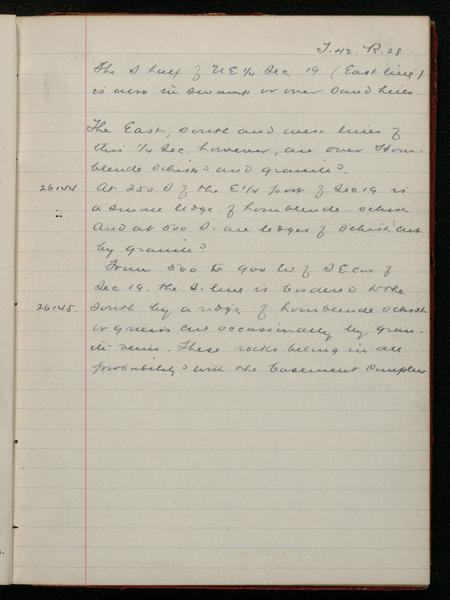 T.42. R.28
The S half of NE¼ Sec 19 (East line)
is also in swamp or over sand hills.
The East, South and west lines of
this ¼ Sec. however, are over Horn-
blende Schists and granites.
26144 At 250 S of the E¼ post of Sec 19 is
a small ledge of hornblende schist
and at 500 S. are ledges of Schist cut
by granite.
From 500 to 900 W of SE cor of
Sec 19. the S. line is bordered to the
26145. South by a ridge of hornblende schist
or gneiss cut occasionally by gran-
ite veins. These rocks belong in all
probability with the basement complex